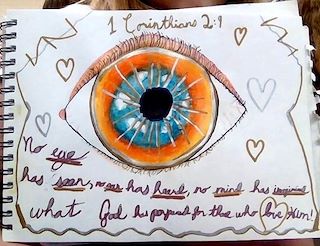 1 Corinthians 2:9
No eye
has seen, no ear has heard, no mind has imagined
what God has prepared for those who love Him!